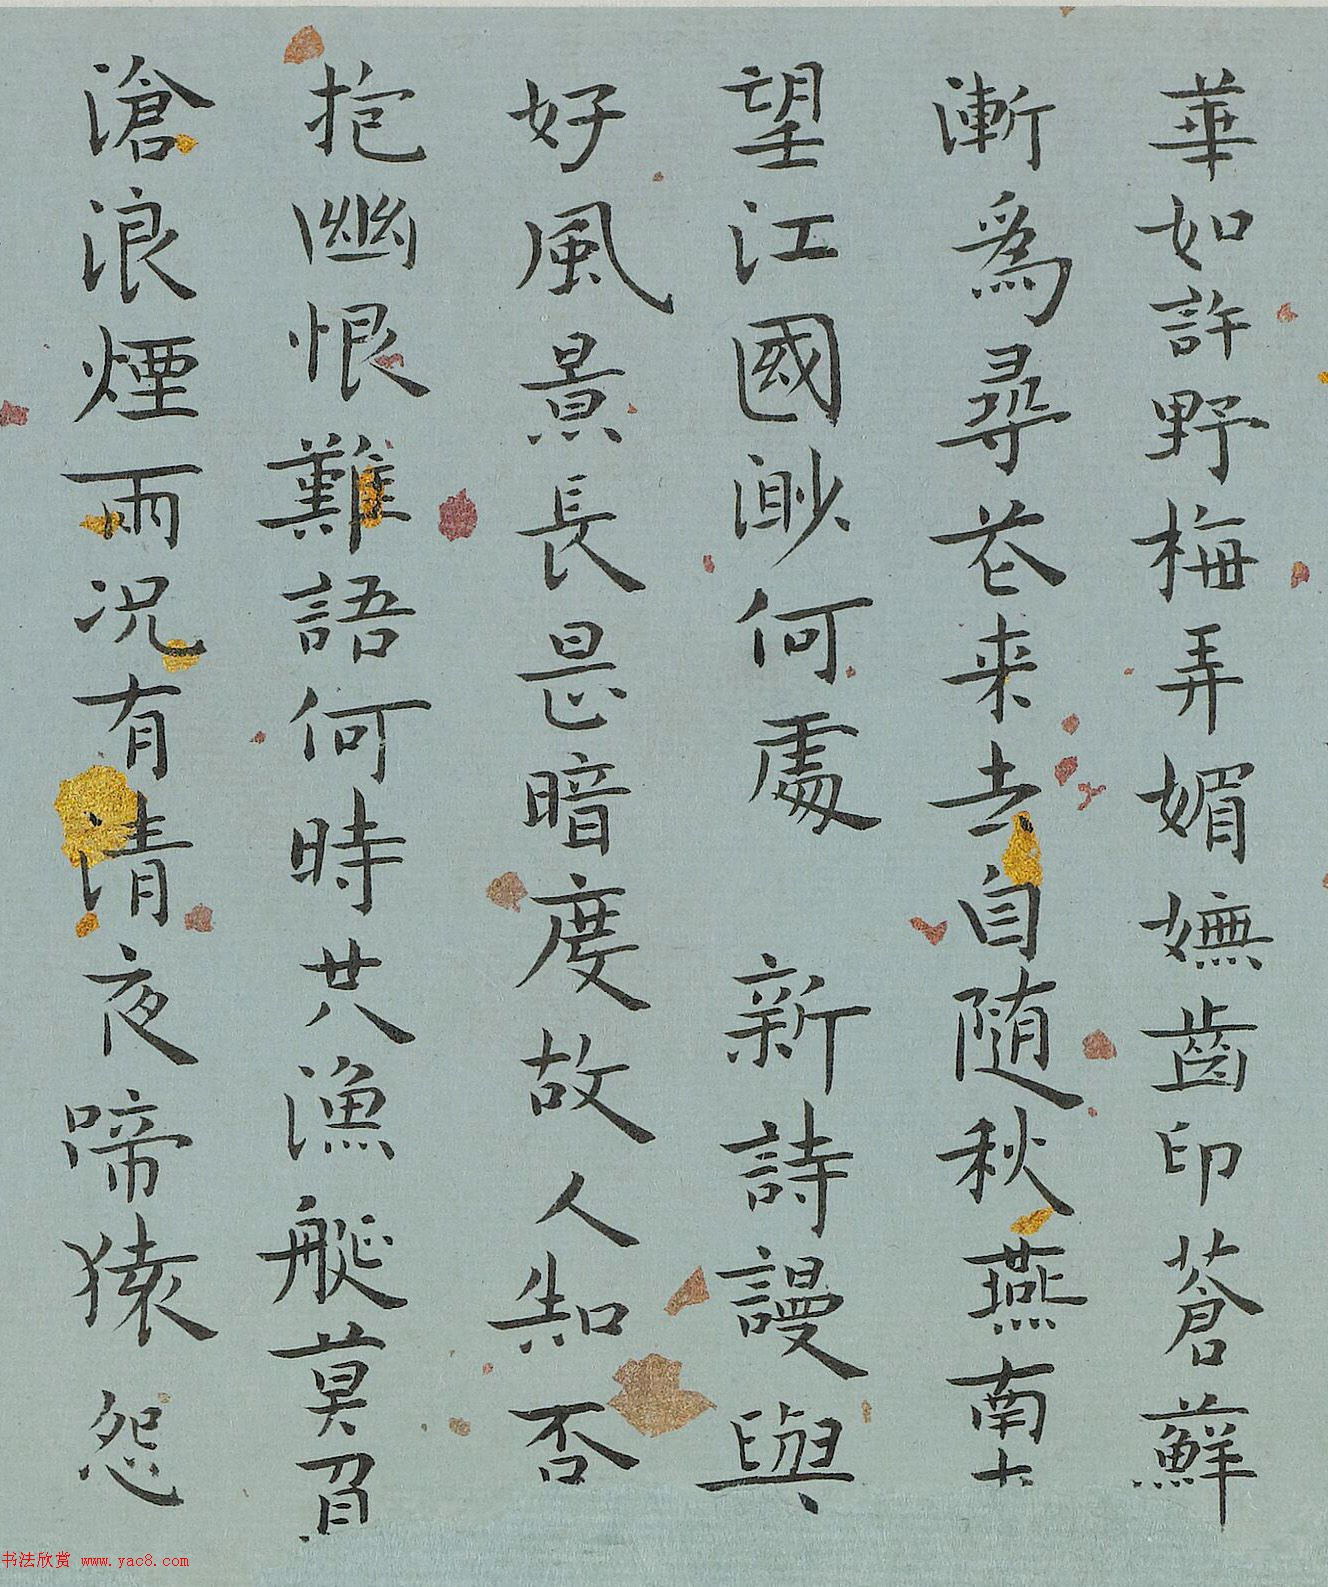 華如許野梅弄媚嫵齒印蒼蘚
漸爲尋花來去自随秋燕南
望江國渺何處 新詩謾與
好風景長是暗度故人知否
抱幽恨難語何時共漁艇莫負
滄浪煙雨况有清夜啼猿怨
书法欣赏 www.yac8.com